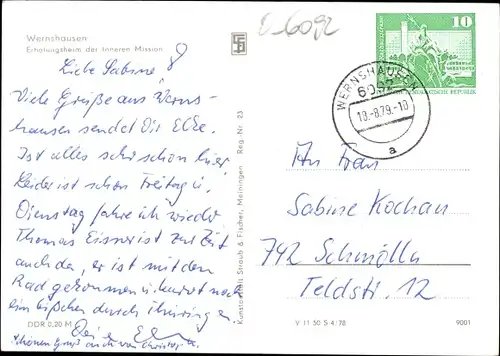 Wernshausen
Erholungsheim der Inneren Mission
E-6092
Liebe Sabine!
Viele Grüße aus Werns-
hausen sendet Dir Elke.
Ist alles sehr schön hier,
Leider ist schon Freitag u.
Dienstag fahre ich wieder
Thomas Eisser ist zur Zeit
auch da, er ist mit dem
Rad gekommen u. kurvt noch
ein bißchen durch Thüringen.
Deine
Schönen Gruß auch von
DDR 0,20 M
Kunstanstalt Straub & Fischer, Meiningen Reg.-Nr. 23
10
WERNSHAUSEN
6092
18.-8.79.-10
a
DEMOKRATISCHE REPUBLIK
An Frau
Sabine Kochan
742 Schmölln
Feldstr. 12
V 11 50 S 4/78
9001